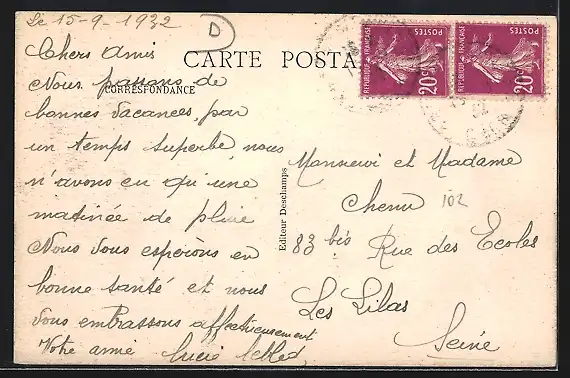 Le 15-9-1932
D
Chers amis
CARTE POSTA
Nous passons de
CORRESPONDANCE
bonnes vacances par
un temps superbe, nous
n'avons eu qu'une
matinée de pluie
Nous vous espérons en
bonne santé et nous
vous embrassons affectueusement
Votre amie Lucie
Editeur Deschamps
REPUBLIQUE FRANÇAISE
POSTES
20c
REPUBLIQUE FRANÇAISE
POSTES
20c
Monsieur et Madame
Chenu 102
83 bis Rue des Ecoles
Les Lilas
Seine